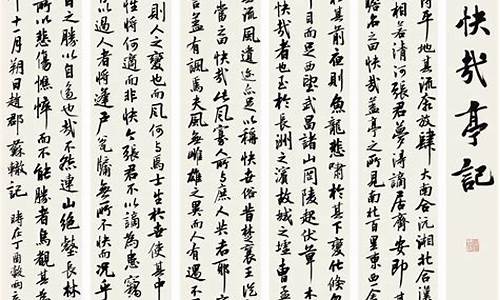 快哉亭記
得平地其流奔放肆大南合沅湘北合漢
相若清河張君夢得謫居齊安即
名之曰快哉蓋亭之所見南北百里東西一合
其前夜則魚龍悲嘯於其下變化倏忽
目而足西望武昌諸山岡陵起伏草木
者也至於長洲之濱故城之墟曹孟
其流風遺迹亦足以稱快世俗昔楚襄王從
當曰快哉此風寡人所與庶人共者耶
言蓋有諷焉夫風無雌雄之異而人有遇不
則人之變也而風何與焉士生於世使其中
性將何適而非快今張君不以謫為患竊
以過人者將蓬戶瓮牖無所不快而況乎
之勝以自適也哉不然連山絕壑長林
所以悲傷憔悴而不能勝者烏覩其
年十一月朔日趙郡蘇轍記 時在丁酉